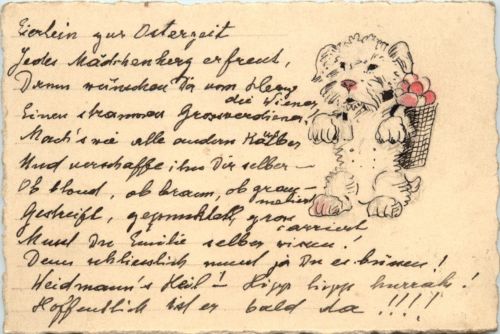 Eierlein zur Osterzeit
Jedes Mädchenherz erfreut,
Drum wünschen Dir vom Herzen
die Wiener
Einen strammen Grossverdiener,
Mach's wie alle andern Kälber
Und verschaffe ihn Dir selber —
Ob blond, ob braun, ob grau —
meliert
Gestreift, gepunktelt, gross
carriert
Musst Du Emilie selber wissen!
Denn schliesslich musst ja Du es büssen!
Weidmann's Heil! Hipp hipp hurrah!
Hoffentlich ist er bald da !!!!